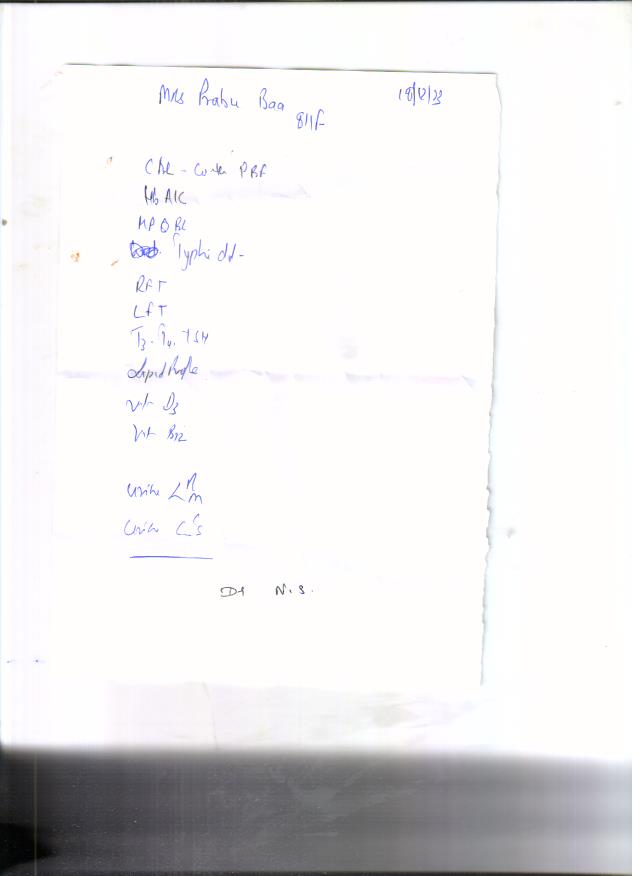 Mrs Prabu Baa 18/12/23
81/F
CBC - PBF
HbA1C
MP QBC
Typhi dd-
RFT
LFT
T3. T4. TSH
Lipid Profile
Vit D3
Vit B12
Urine R/M
Urine C/S
Dr N.S.